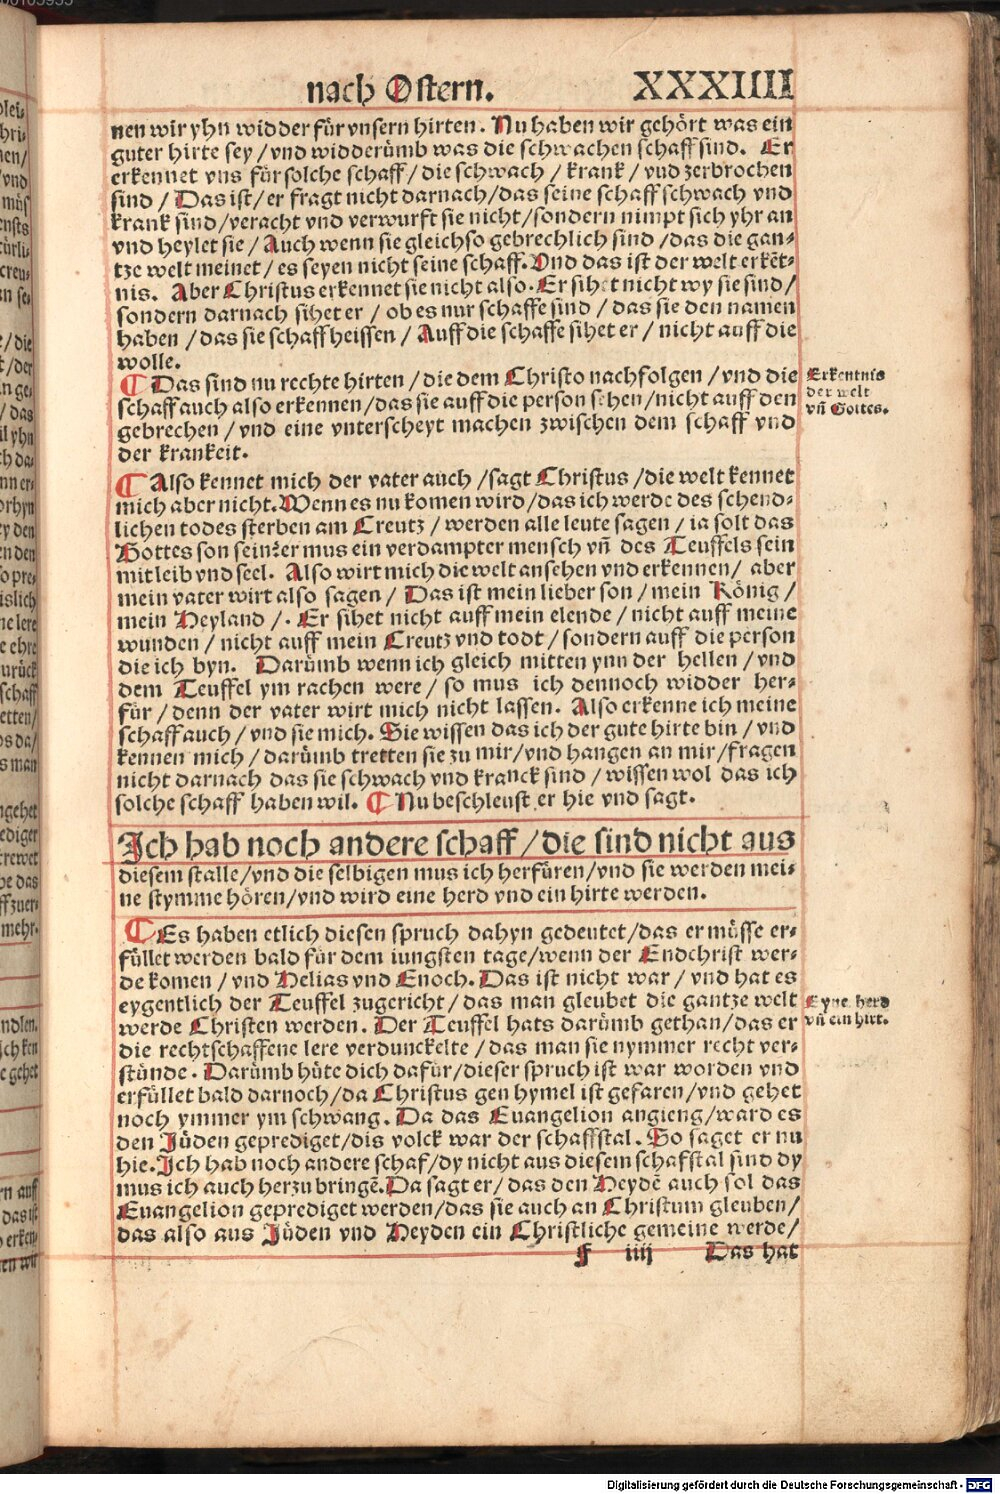 nach Ostern. XXXIIII
nen wir yhn widder für vnsern hirten. Nu haben wir gehört was ein
guter hirte sey / vnd widderümb was die schwachen schaff sind. Er
erkennet vns für solche schaff / die schwach / krank / vnd zerbrochen
sind / Das ist / er fragt nicht darnach / das seine schaff schwach vnd
krank sind / veracht vnd verwurft sie nicht / sondern nimpt sich yhr an
vnd heylet sie / Auch wenn sie gleich so gebrechlich sind / das die gan-
tze welt meinet / es seyen nicht seine schaff. Vnd das ist der welt erkēt-
nis. Aber Christus erkennet sie nicht also. Er sihet nicht wy sie sind /
sondern darnach sihet er / ob es nur schaffe sind / das sie den namen
haben / das sie schaff heissen / Auff die schaffe sihet er / nicht auff die
wolle.
¶ Das sind nu rechte hirten / die dem Christo nachfolgen / vnd die
schaff auch also erkennen / das sie auff die person sehen / nicht auff den
gebrechen / vnd eine vnterscheyt machen zwischen dem schaff vnd
der krankeit.
Erkentnis
der welt
vñ Gottes.
¶ Also kennet mich der vater auch / sagt Christus / die welt kennet
mich aber nicht. Wenn es nu komen wird / das ich werde des schend-
lichen todes sterben am Creutz / werden alle leute sagen / ia solt das
Gottes son sein? er mus ein verdampter mensch vñ des Teuffels sein
mit leib vnd seel. Also wirt mich die welt ansehen vnd erkennen / aber
mein vater wirt also sagen / Das ist mein lieber son / mein König /
mein Heyland /. Er sihet nicht auff mein elende / nicht auff meine
wunden / nicht auff mein Creutz vnd todt / sondern auff die person
die ich byn. Darümb wenn ich gleich mitten ynn der hellen / vnd
dem Teuffel ym rachen were / so mus ich dennoch widder her-
für / denn der vater wirt mich nicht lassen. Also erkenne ich meine
schaff auch / vnd sie mich. Sie wissen das ich der gute hirte bin / vnd
kennen mich / darümb tretten sie zu mir / vnd hangen an mir / fragen
nicht darnach das sie schwach vnd kranck sind / wissen wol das ich
solche schaff haben wil. ¶ Nu beschleust er hie vnd sagt.
Ich hab noch andere schaff / die sind nicht aus
diesem stalle / vnd die selbigen mus ich herfüren / vnd sie werden mei-
ne stymme hören / vnd wird eine herd vnd ein hirte werden.
¶ Es haben etlich diesen spruch dahyn gedeutet / das er müsse er-
füllet werden bald für dem iungsten tage / wenn der Endchrist wer-
de komen / vnd Helias vnd Enoch. Das ist nicht war / vnd hat es
eygentlich der Teuffel zugericht / das man gleubet die gantze welt
werde Christen werden. Der Teuffel hats darümb gethan / das er
die rechtschaffene lere verdunckelte / das man sie nymmer recht ver-
stünde. Darümb hüte dich dafür / dieser spruch ist war worden vnd
erfüllet bald darnoch / da Christus gen hymel ist gefaren / vnd gehet
noch ymmer ym schwang. Da das Euangelion angieng / ward es
den Jüden geprediget / dis volck war der schaffstal. So saget er nu
hie. Ich hab noch andere schaf / dy nicht aus diesem schafstal sind dy
mus ich auch herzu bringē. Da sagt er / das den Heydē auch sol das
Euangelion geprediget werden / das sie auch an Christum gleuben /
das also aus Jüden vnd Heyden ein Christliche gemeine werde /
Eyne herd
vñ ein hirt.
F iiij Das hat
Digitalisierung gefördert durch die Deutsche Forschungsgemeinschaft - DFG